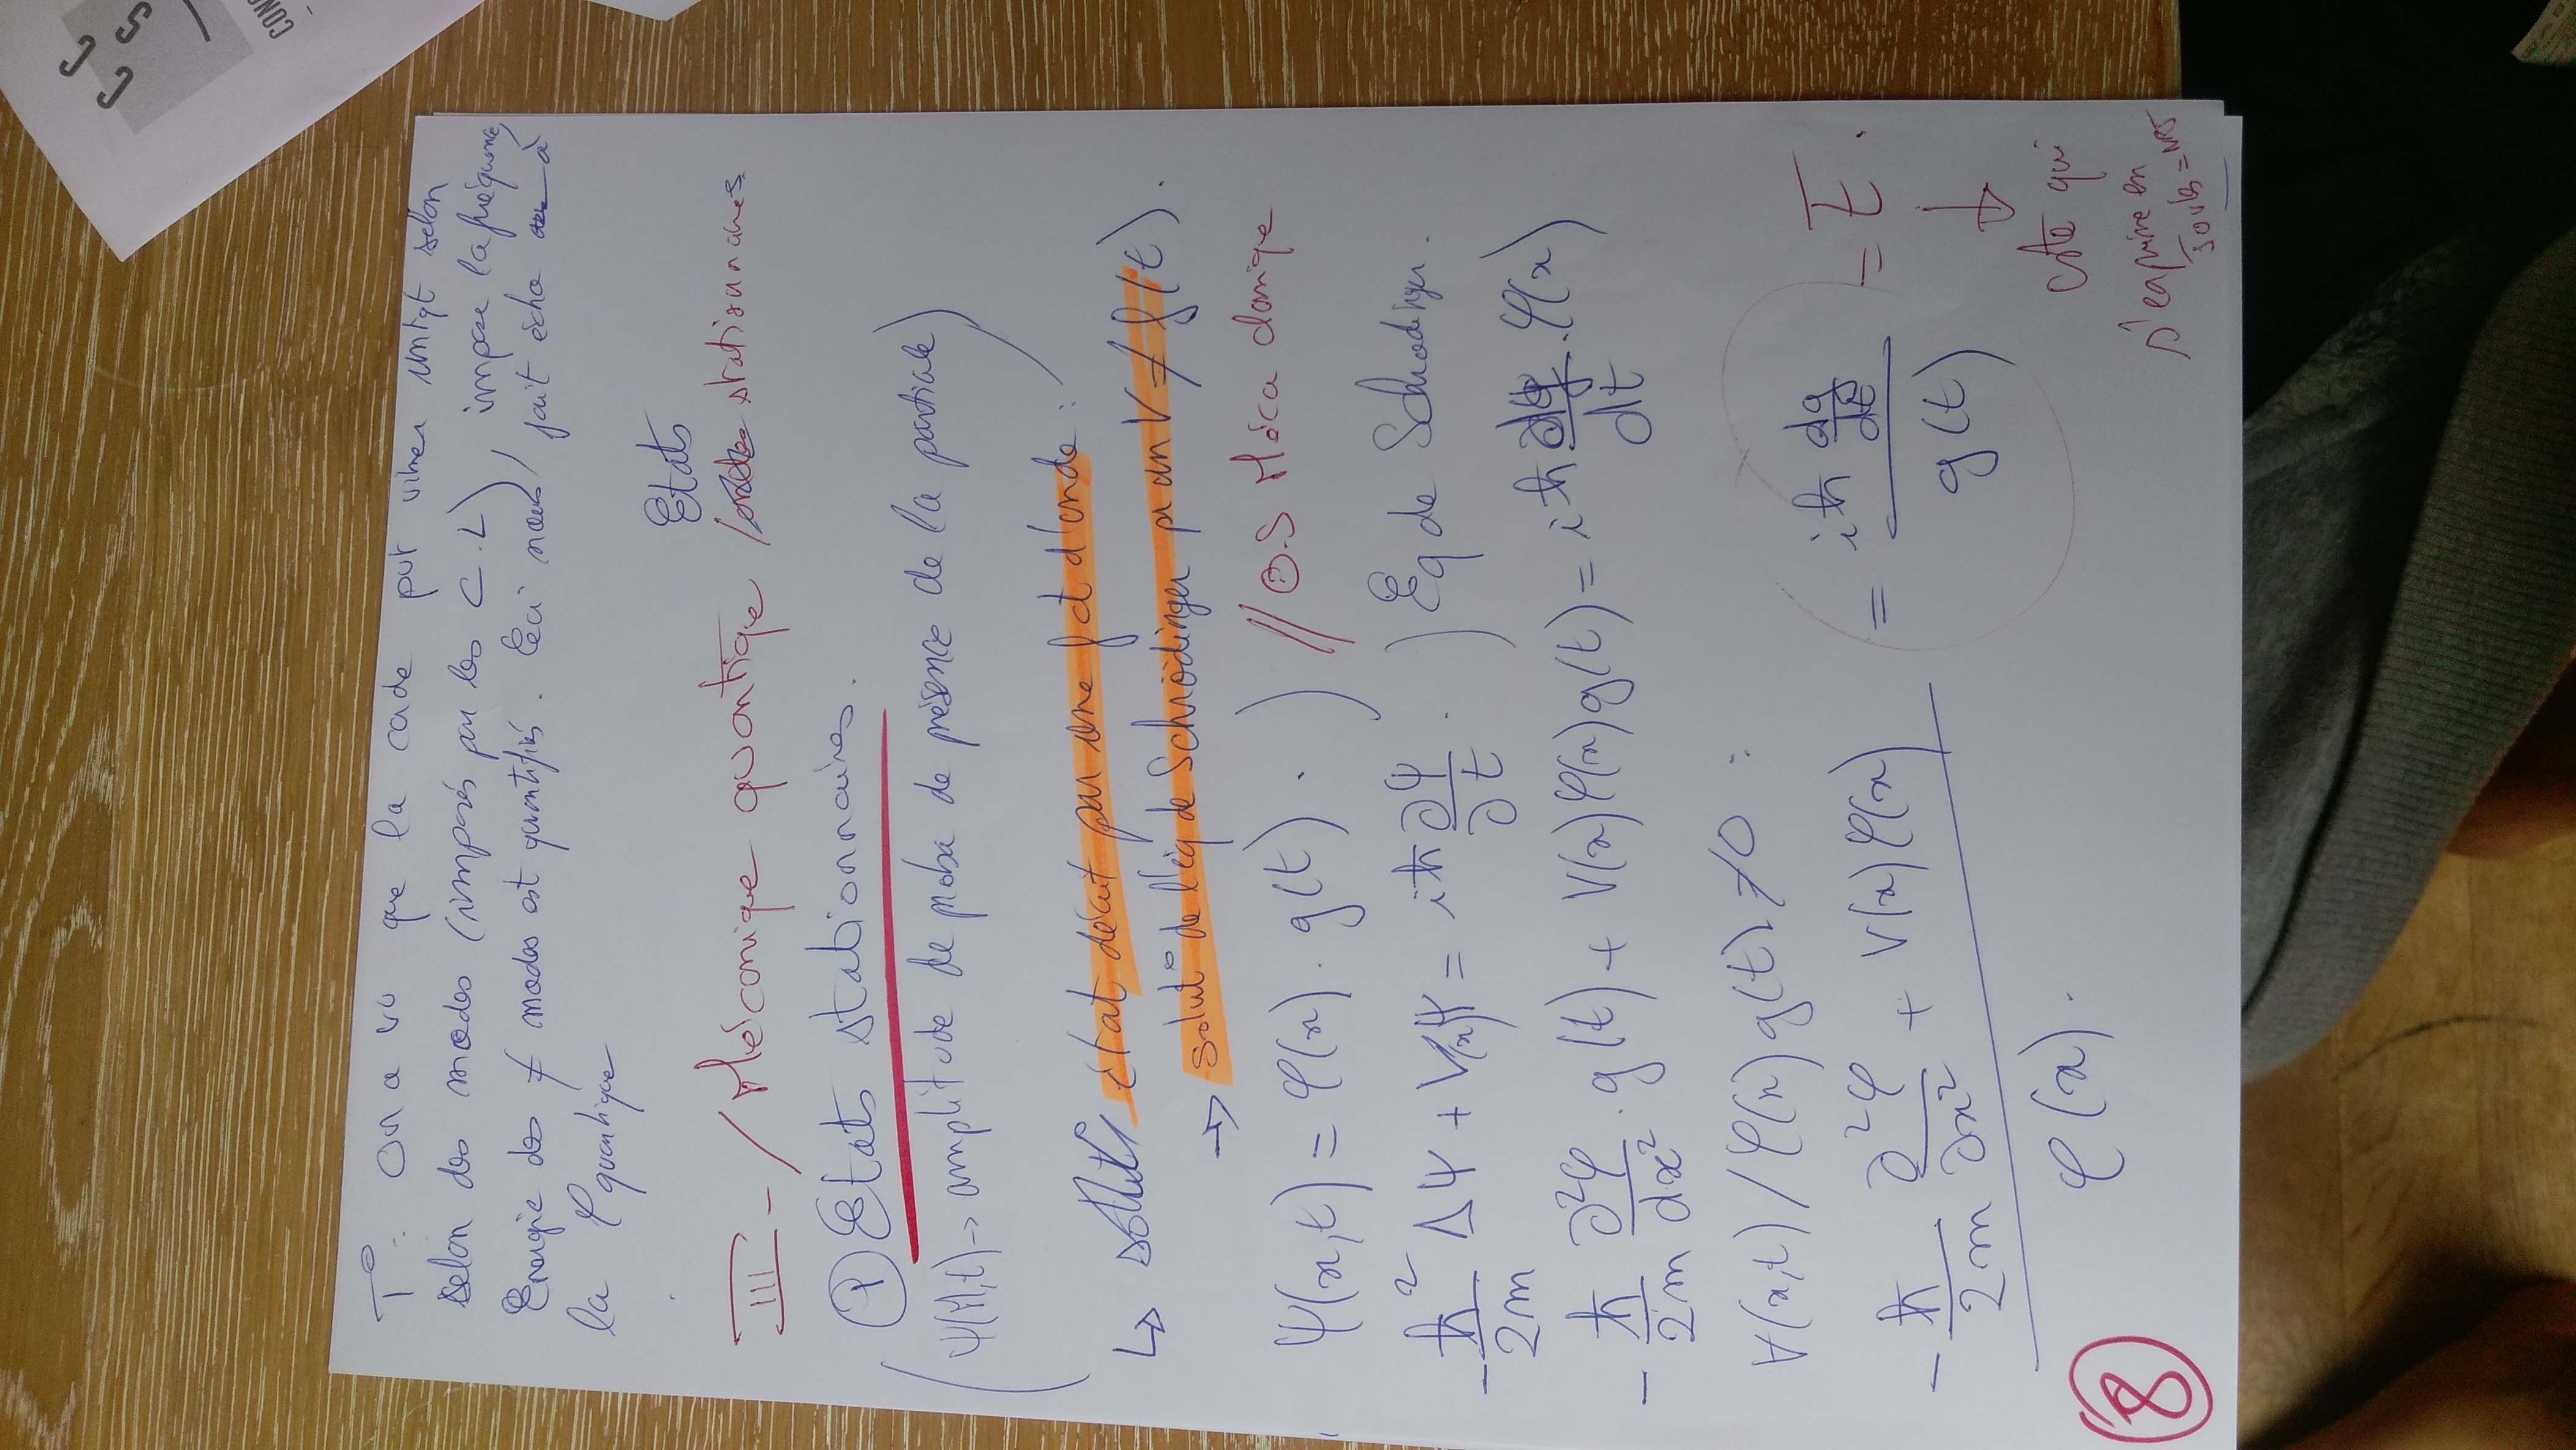 T° : On a vu que la corde put vibrer uniqt selon
selon des modes (imposés par les C.L) impose la fréquence,
Energie des ≠ modes est quantifiés. Ceci nous fait écho à
la φ quantique
III - / Mécanique quantique / Etats stationnaires
① Etats stationnaires.
( Ψ(M,t) → amplitude de proba de présence de la particule )
↳ état décrit par une fct d'onde :
→ solut° de l'éq de Schrödinger pour V ≠ f(t).
Ψ(x,t) = φ(x) . g(t) . ) // O.S Méca classique
- ħ²/2m ΔΨ + V(x)Ψ = iħ ∂Ψ/∂t . ) Eq de Schrodinger.
- ħ/2m ∂²φ/dx² . g(t) + V(x) φ(x) g(t) = iħ dg/dt . φ(x)
∀(x,t) / φ(x) g(t) ≠ 0 :
- ħ/2m ∂²φ/∂x² + V(x) φ(x) / φ(x) . = iħ dg/dt / g(t) = E .
↓
cste qui
s'exprime en
Joules =
8
CON